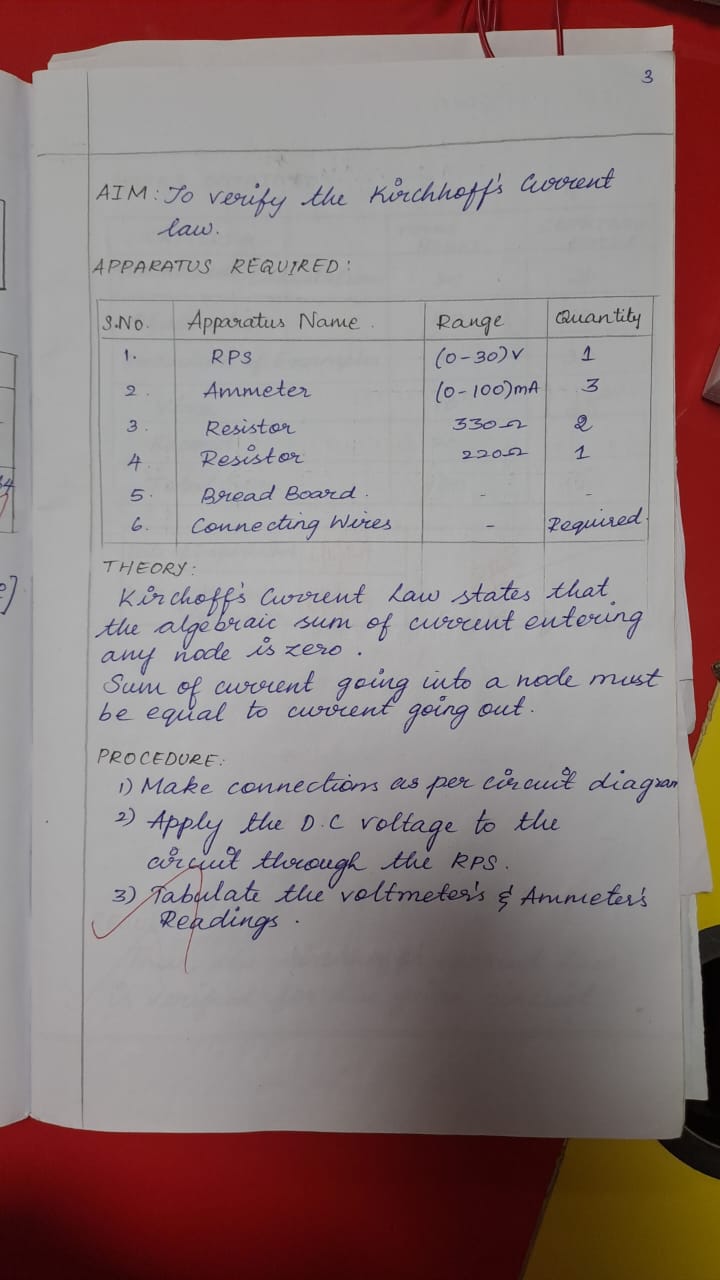 3
AIM: To verify the Kirchhoff's Current
law.
APPARATUS REQUIRED:
S.No. Apparatus Name. Range Quantity
1. RPS (0-30)V 1
2. Ammeter (0-100)mA 3
3. Resistor 330Ω 2
4. Resistor 220Ω 1
5. Bread Board. - -
6. Connecting Wires - Required.
THEORY:
Kirchoff's Current Law states that
the algebraic sum of current entering
any node is zero.
Sum of current going into a node must
be equal to current going out.
PROCEDURE:
1) Make connections as per circuit diagram
2) Apply the D.C voltage to the
circuit through the RPS.
3) Tabulate the voltmeter's & Ammeter's
Readings.